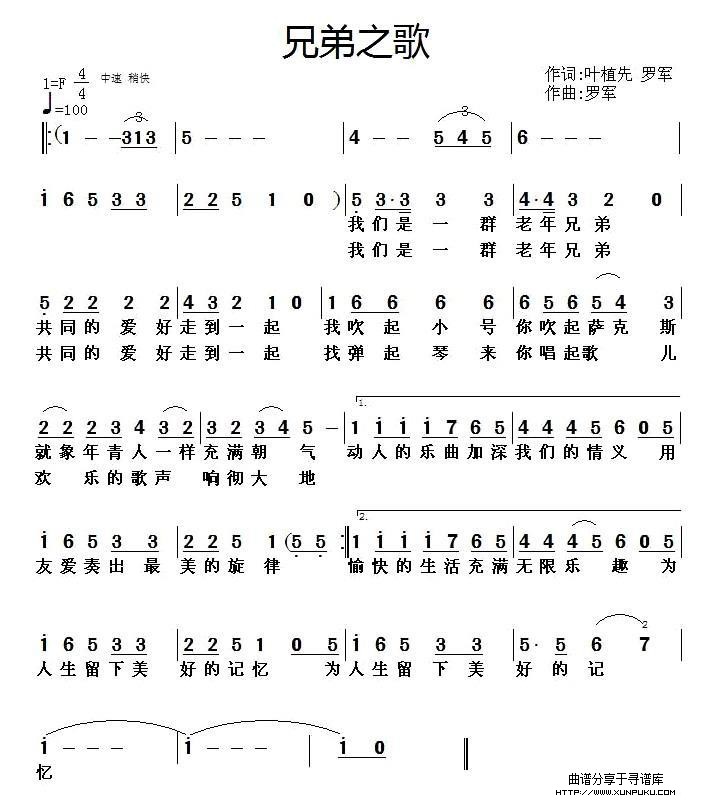 兄弟之歌
1=F 4/4 中速 稍快
♩=100
作词:叶植先 罗军
作曲:罗军
(1 - - 313 5 - - - 4 - - 5 4 5 6 - - -
i 6 5 3 3 2 2 5 1 0 ) 5 3·3 3 3 4·4 3 2 0
我们是一群 老年兄弟
我们是一群 老年兄弟
5 2 2 2 2 4 3 2 1 0 1 6 6 6 6 6 5 6 5 4 3
共同的爱好走到一起 我吹起小号你吹起萨克斯
共同的爱好走到一起 我弹起琴来你唱起歌儿
2 2 2 3 4 3 2 3 2 3 4 5 - 1. 1 i i i 7 6 5 4 4 5 6 0 5
就象年青人一样充满朝气 动人的乐曲加深我们的情义用
欢乐的歌声响彻大地
i 6 5 3 3 2 2 5 1 (5 5 2. 1 i i i 7 6 5 4 4 4 5 6 0 5
友爱奏出最美的旋律 愉快的生活充满无限乐趣为
i 6 5 3 3 2 2 5 1 0 5 i 6 5 3 3 5· 5 6 2 7
人生留下美好的记忆 为人生留下美好的记
i - - - i - - - i 0
忆
曲谱分享于寻谱库
HTTP://WWW.XUNPUKU.COM